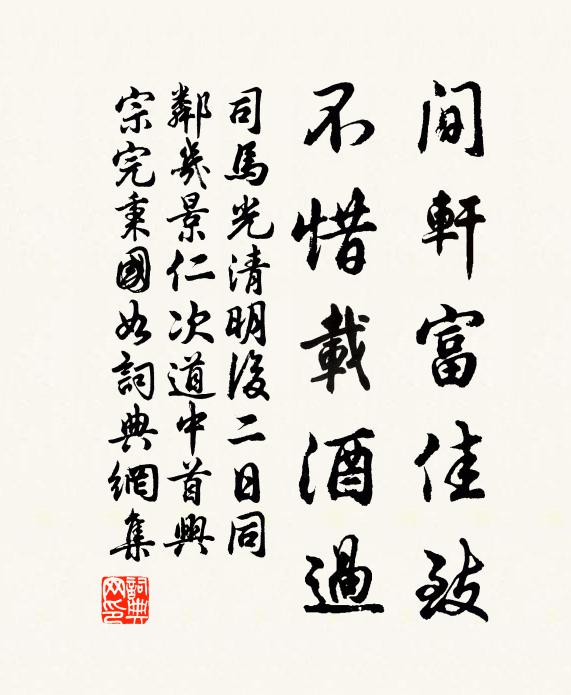 間軒富佳致
不惜載酒過
司馬光清明後二日同
鄰幾景仁次道中首興
宗完秉國如詞典網集
詞典網印